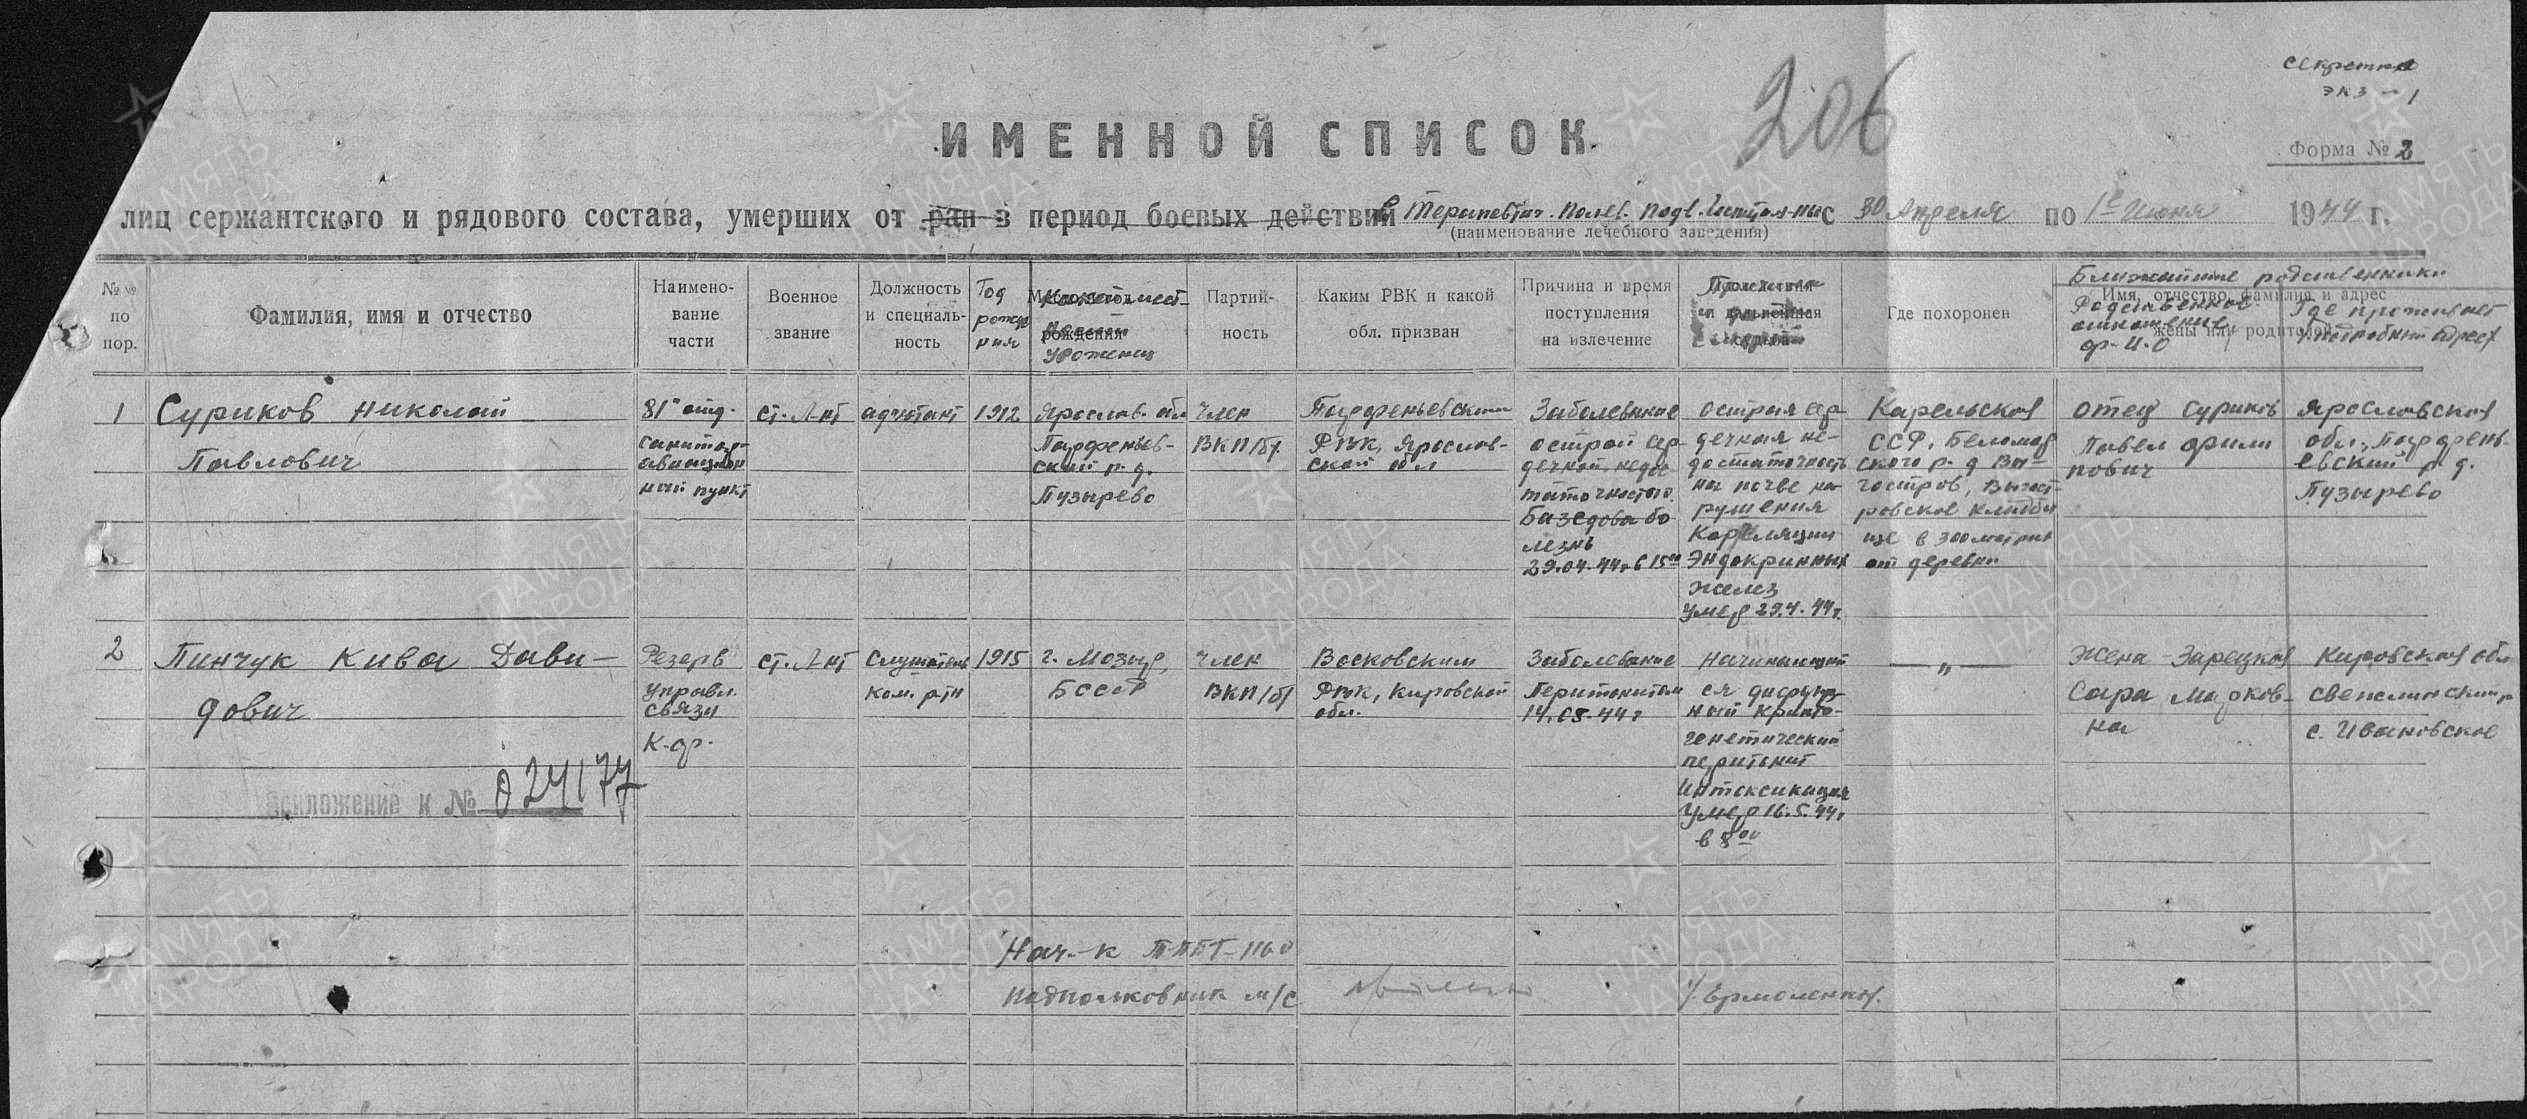 секретно
экз - 1
206
ИМЕННОЙ СПИСОК
Форма № 2
лиц сержантского и рядового состава, умерших от ран в период боевых действий в Терапевтич. полев. подв. с 30 Апреля по 1е Июня 1944 г.
(наименование лечебного заведения)
№№ по пор.
Фамилия, имя и отчество
Наимено-
вание
части
Военное
звание
Должность
и специаль-
ность
Год
рожде
ния
рождения
урожениц
Партий-
ность
Каким РВК и какой
обл. призван
Причина и время
поступления
на излечение
Где похоронен
Ближайшие родственники
Имя, отчество, фамилия и адрес
жены или родителей
Родственное
отношение
ф-И-О
Где проживает
1
Суриков Николай
Павлович
81 отд.
санитар-
авиацион
ный пункт
ст. Л-нт
адъютант
1912
Ярослав. обл
Парфеньев-
ский р. д.
Пузырево
член
ВКП/б/
Парфеньевским
РВК, Ярослав-
ской обл
Заболевание
острой сер-
дечной недос
таточностью.
Базедова бо
лезнь
29.04.44г в 15 00
острая сер-
дечная не-
достаточность
на почве на-
рушения
Корреляции
Эндокринных
желез
умер 29.4.44г.
Карельская
ССР, Беломор
ского р. д Вы-
гостров, Выгост-
ровское кладби
ще в 300 метрах
от деревни
отец Суриков
Павел Фили
пович
Ярославская
обл., Парфень-
евский р д.
Пузырево
2
Пинчук Кива Дави-
дович
Резерв
управл.
связи
К-ф.
ст. Л-нт
Слушатель
ком. р-ты
1915
г. Мозырь,
БССР
член
ВКП/б/
РВК, Кировской
обл.
Заболевание
Перитонитом
14.05.44г
начинающий
ся диффуз-
ный крипто-
генетический
перитонит
Интоксикация
Умер 16.5.44г
в 8 00
— " —
Жена - Зарецкая
Сара Марков-
на
Кировская обл
с. Ивановское
Приложение к № 024177
Нач-к ТППГ-1160
подполковник м/с
/Ермоленко/.
ПАМЯТЬ
НАРОДА